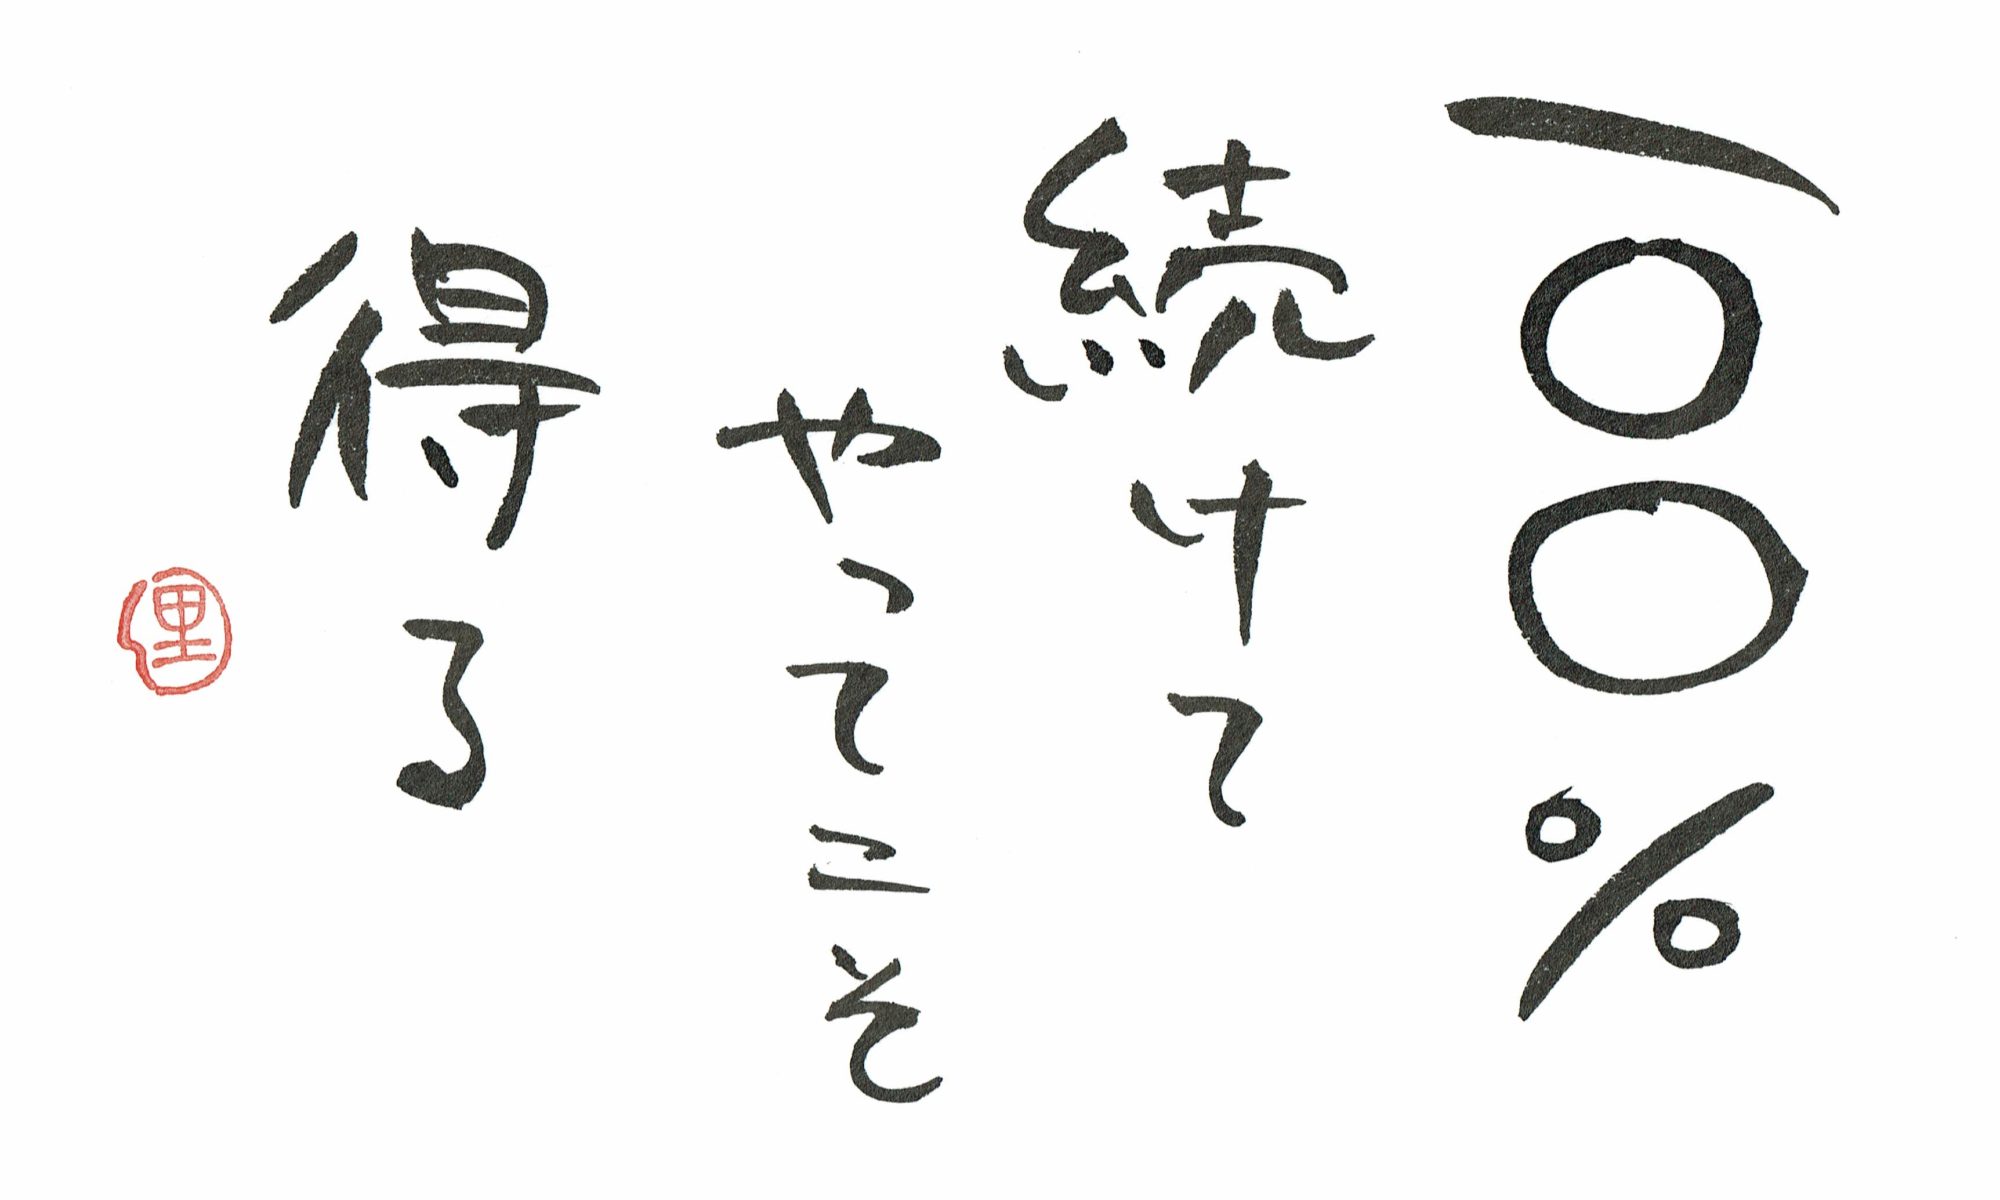 一〇〇%
続けて
やってこそ
得る
里